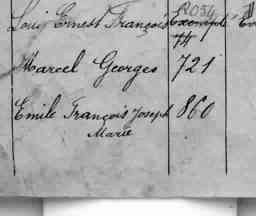 R034
Louis Ernest François Exempté
74
Marcel Georges 721
Emile François Joseph 860
Marie